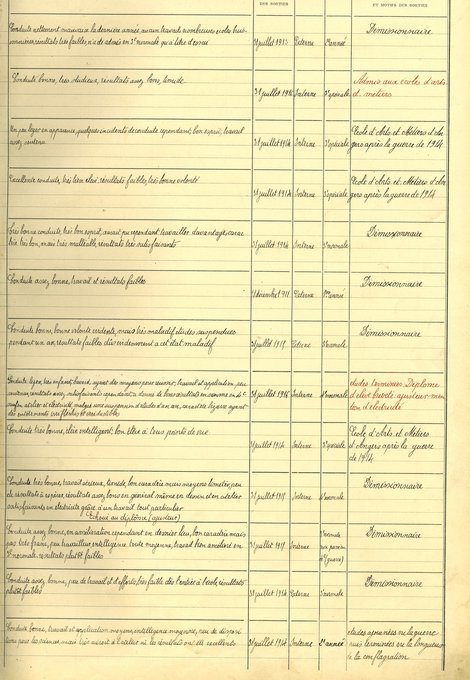 DES SORTIES
ET MOTIFS DES SORTIES
Conduite nettement mauvaise la dernière année
résultats très faibles, n'a été admis en 3e normale qu'à titre d'essai
31 juillet 1913 Externe 3e année Démissionnaire
Conduite bonne, très studieux, résultats assez bons, timide
31 juillet 1916 Interne 3e spéciale Admis aux écoles d'arts
et métiers
Un peu léger en apparence, quelques incidents de conduite cependant, bon esprit, travail
assez soutenu
31 juillet 1914 Interne 3e spéciale Ecole d'Arts et Métiers d'An
gers après la guerre de 1914
Excellente conduite, très bien élevé, résultats faibles, très bonne volonté
31 juillet 1914 Interne 3e spéciale Ecole d'Arts et Métiers d'An
gers après la guerre
de 1914
Très bonne conduite, très bon esprit, aurait pu cependant travailler davantage, carac
tère très bon, résultats très satisfaisants
31 juillet 1914 Interne 3e normale Démissionnaire
Conduite assez bonne, travail et résultats faibles
décembre 1911 Externe 1re année Démissionnaire
Conduite bonne, bonne volonté évidente, mais très maladif, études suspendues
pendant un an, résultats faibles dûs évidemment à cet état maladif
31 juillet 1915 Externe 3e normale Démissionnaire
Conduite légère, très enfant, bavard, ayant des moyens pour réussir, travail et application peu
résultats cependant
atelier et électricité, malgré une suspension d'études d'un an, caractère léger
31 juillet 1916 Interne 4e normale études terminées. Diplôme
d'élève breveté ajusteur men
tion d'électricité
Conduite très bonne, élève intelligent, bon élève à tous points de vue
31 juillet 1914 Interne 3e spéciale Ecole d'Arts et Métiers
d'Angers après la guerre
de 1914
Conduite très bonne, travail sérieux, timide, bon caractère mais moyens limités, peu
de résultats à espérer, résultats assez bons en général même en dessin et en atelier
satisfaisants en électricité grâce à un travail tout particulier
Echoué au diplôme (ajusteur)
31 juillet 1915 Interne 4e normale Démissionnaire
Conduite assez bonne, en amélioration cependant en dernier lieu, bon caractère mais
pas très franc, peu travailleur, intelligence toute moyenne, travail bien amélioré en
3e normale, résultats plutôt faibles
31 juillet 1915 Interne 3e normale
guerre) Démissionnaire
Conduite assez bonne, peu de travail et d'efforts, très faible dès l'entrée à l'école, résultats
plutôt faibles
31 juillet 1914 Externe 3e normale Démissionnaire
Conduite bonne, travail et application moyens, intelligence moyenne, peu de disposi
tions pour les sciences mais très adroit à l'atelier où les résultats ont été excellents
31 juillet 1914 Interne 2e année études ajournées vu la guerre
puis terminées vu la longueur
de la conflagration